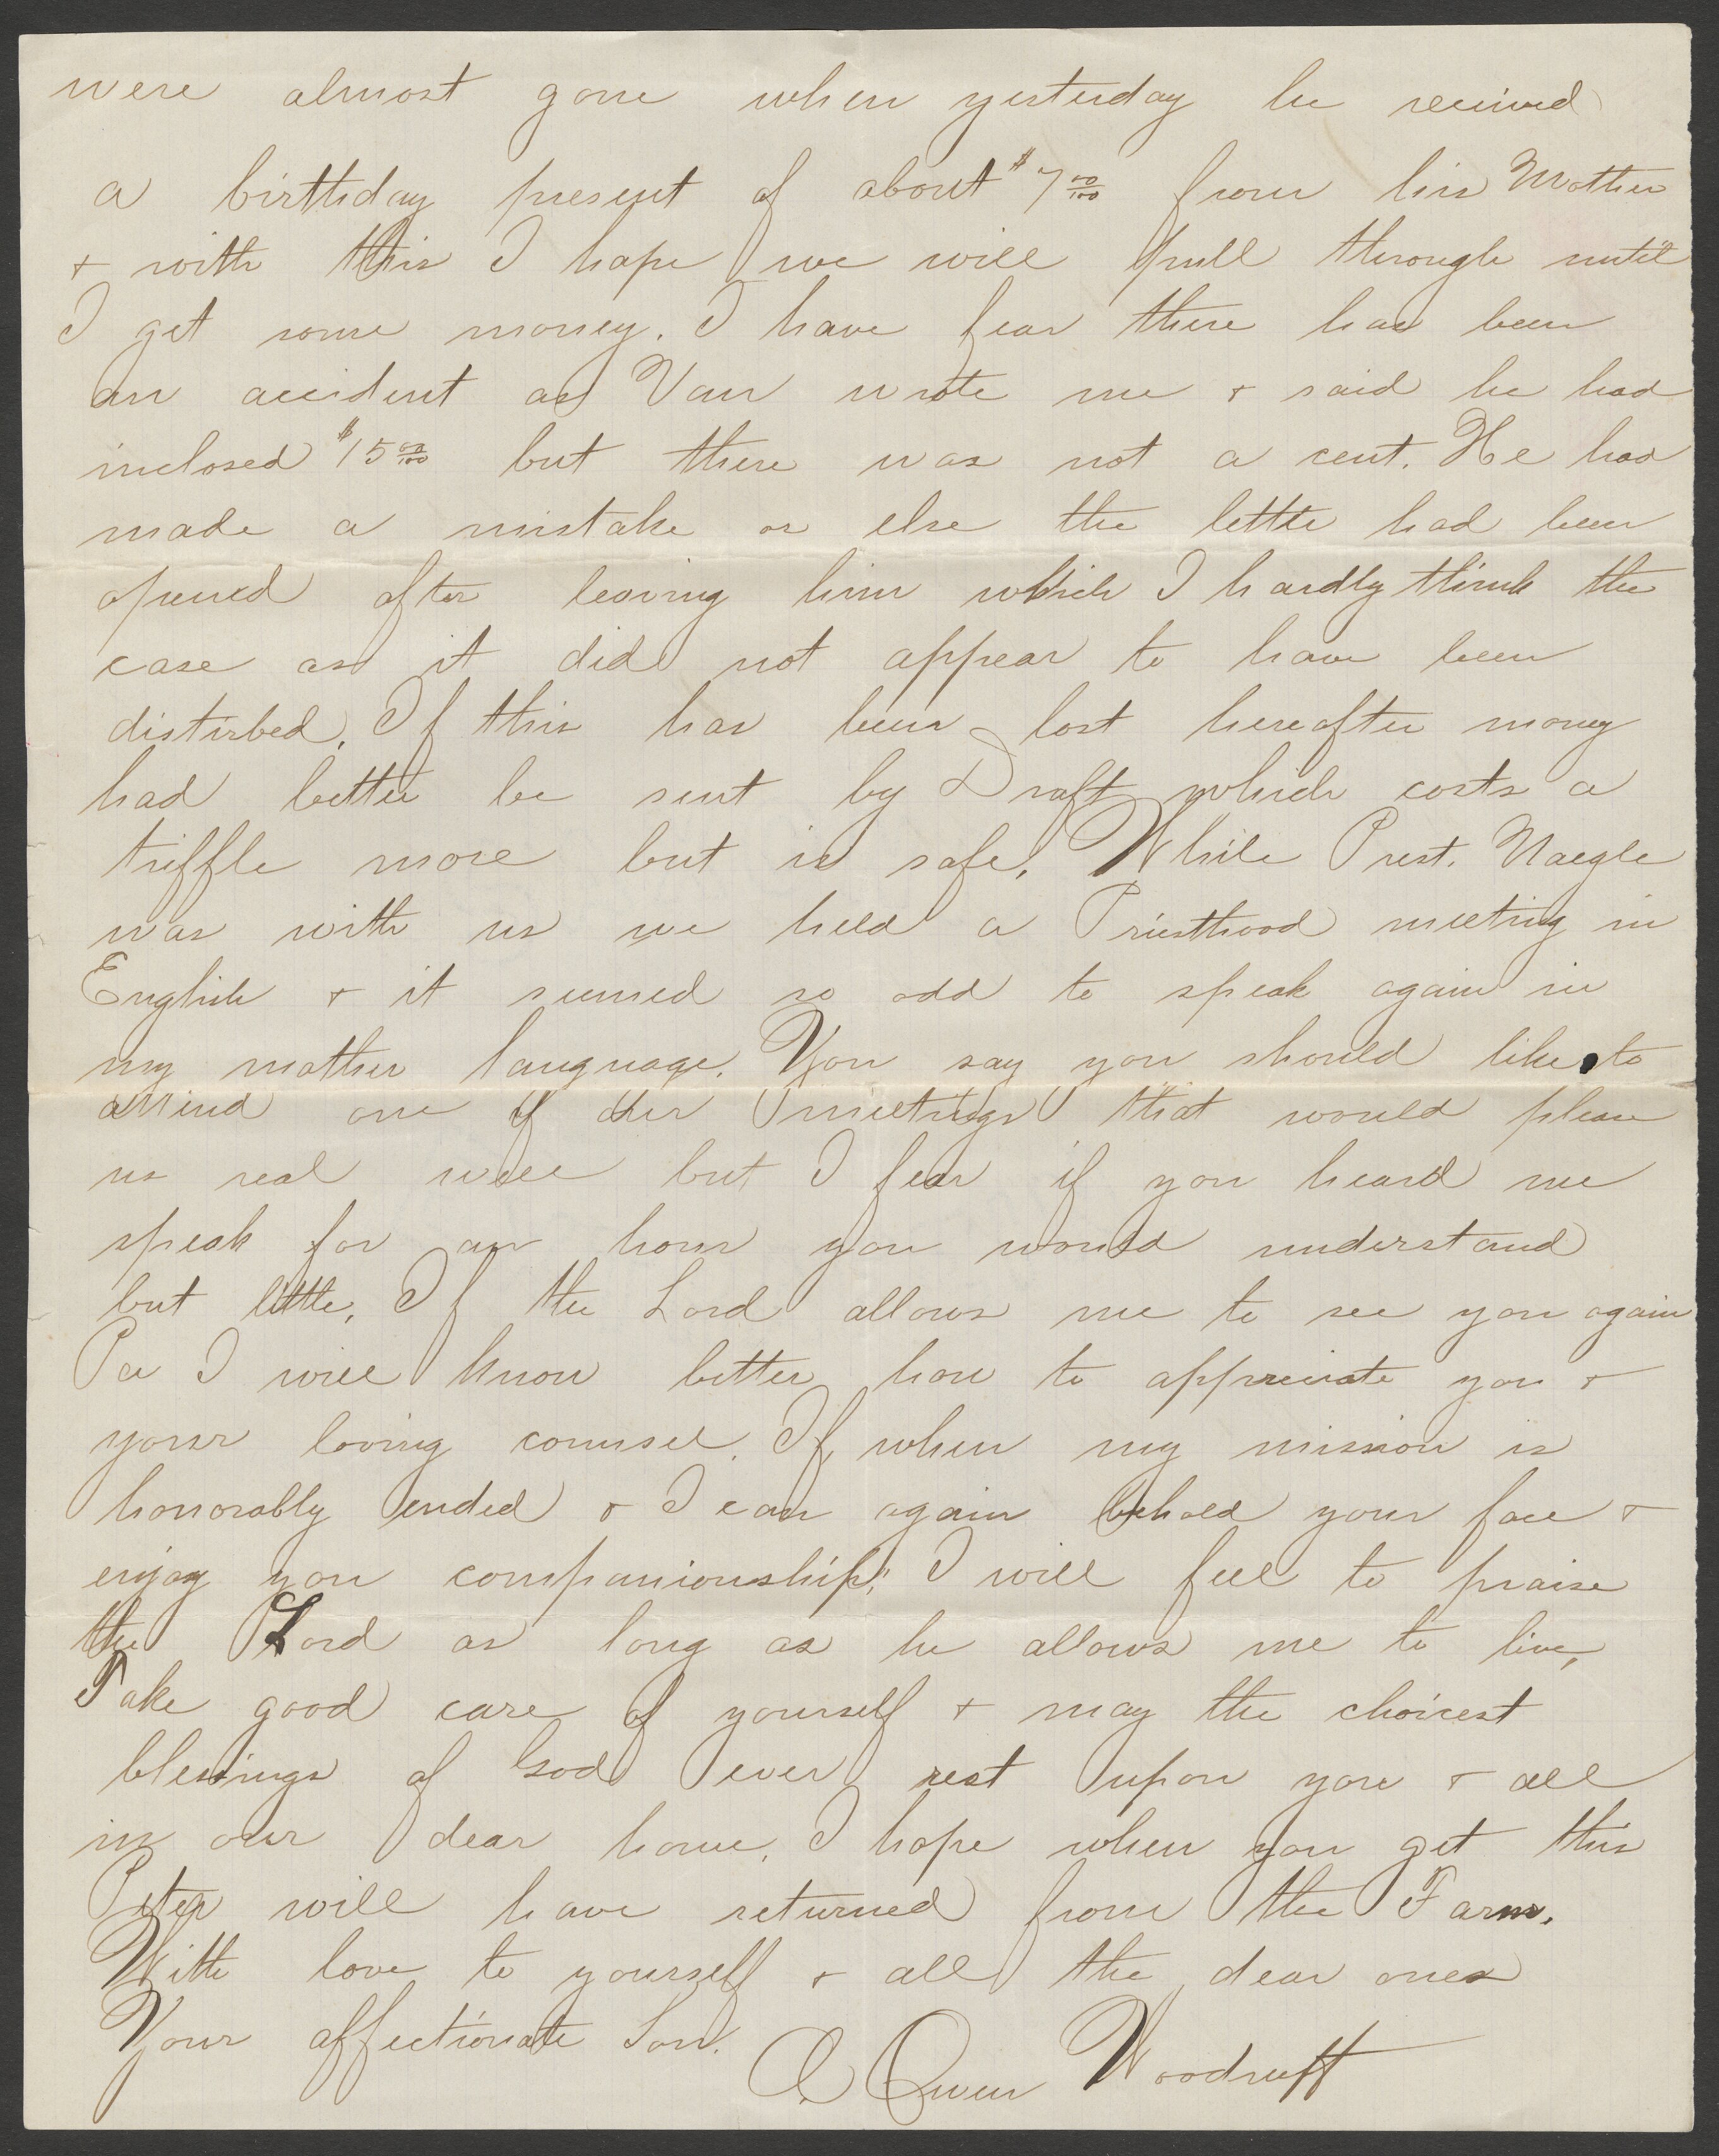 were almost gone when yesterday he recieved
a birthday present of about $7 00/100 from his Mother
+ with this I hope we will pull through until
I get some money. I have fear there has been
an accident as Van wrote me + said he had
inclosed $15 00/100 but there was not a cent. He had
made a mistake or else the letter had been
opened after leaving him which I hardly think the
case as it did not appear to have been
distirbed. If this has been lost hereafter money
had better be sent by Draft which costs a
triffle more but is safe. While Prest. Naegle
was with us we held a Priesthood meeting in
English + it seemed so odd to speak again in
my mother language. You say you should like to
attend one of our meetings that would please
us real well but I fear if you heard me
speak for an hour you would understand
but little. If the Lord allows me to see you again
Pa I will know better how to appreciate you +
your loving counsel. If when my mission is
honorably ended + I can again behold your face +
enjoy you companionship, I will feel to praise
the Lord as long as he allows me to live,
Take good care of yourself + may the choicest
blessings of God ever rest upon you + all
in our dear home. I hope when you get this
Peter will have returned from the Farm.
With love to yourself + all the dear ones
Your affectionate Son.
A Owen Woodruff